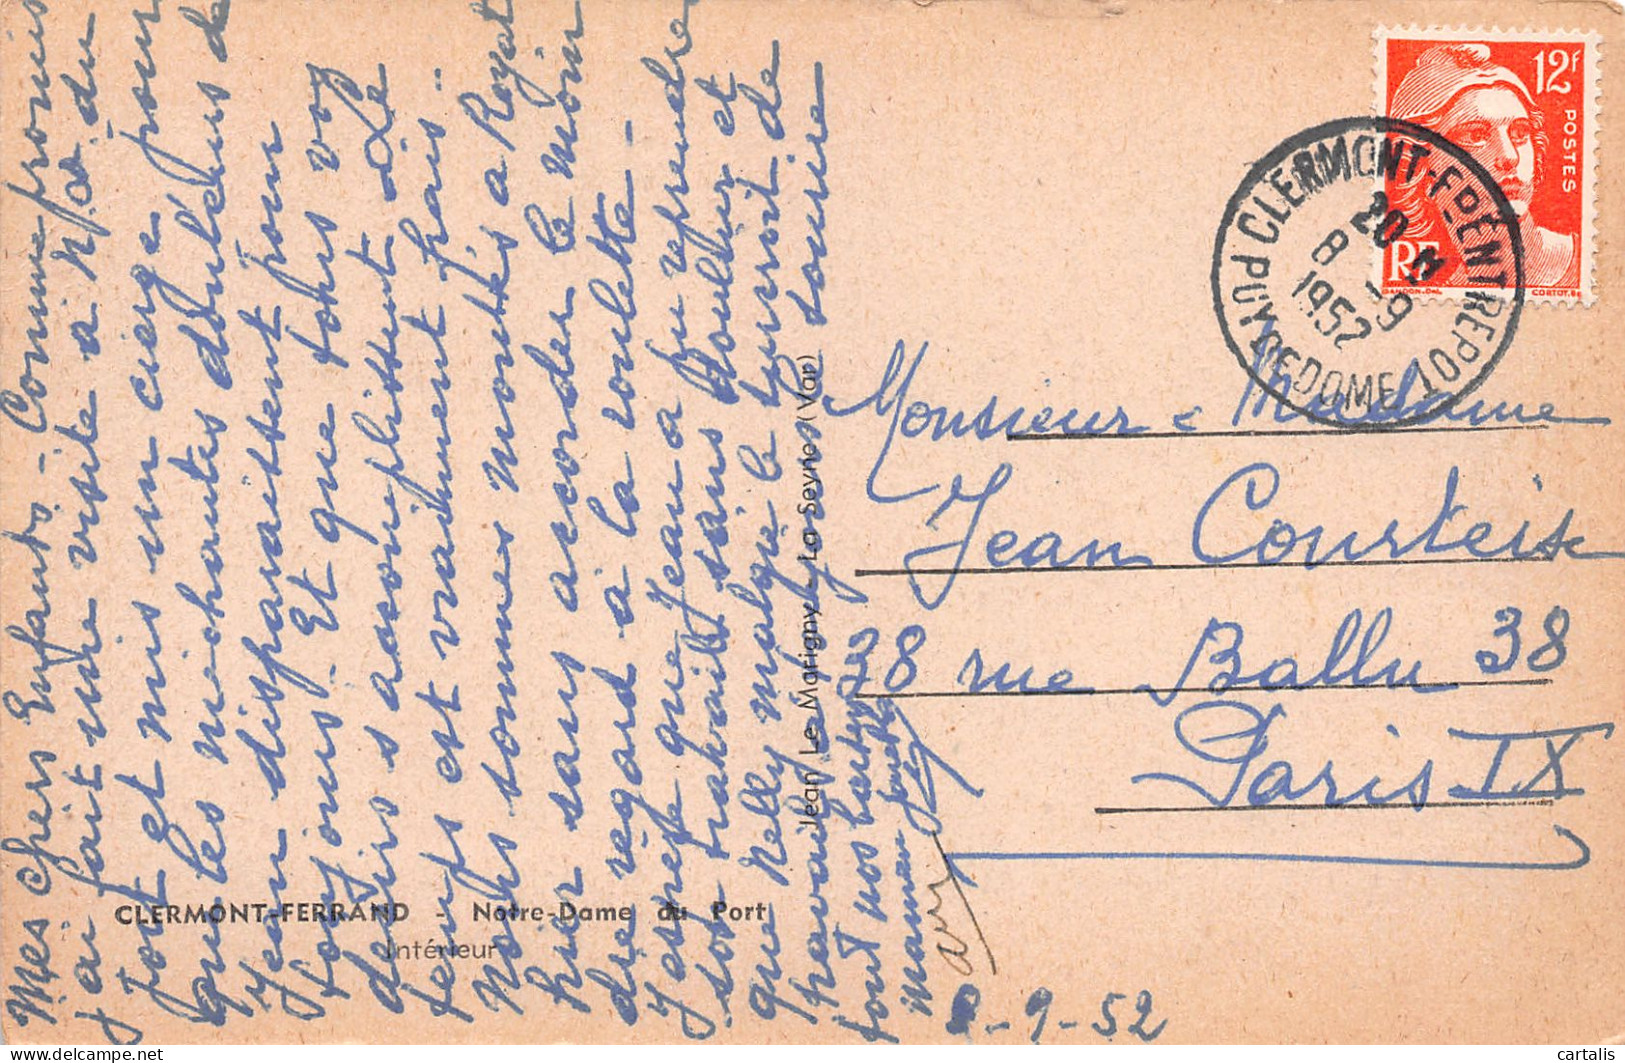 Mes chers Enfants - Comme promis
j'ai fait une visite à N. D. du
Port et mis un cierge pour
que les méchantes douleurs de
Jean disparaissent pour
toujours. Et que tous vos
désirs s'accomplissent. Le
temps est vraiment frais..
Nous sommes montés a Royat
hier sans accorder le moin
dre regard à la roulette -
J'espère que Jean a pu reprendre
son travail sans douleur et
que Nelly malgré le surcroit de
travail
sourire
tout nos baisers
Maman
8-9-52
CLERMONT-FERRAND - Notre-Dame du Port
Intérieur
Jean Le Marigny La Seyne (Var)
12F
POSTES
RF
GANDON.DEL.
CORTOT.SC
CLERMONT-FD ENTREPOT
PUY DE DOME
20 H
8 - 9
1952
Monsieur e Madame
Jean Courteise
38 rue Ballu 38
Paris IX
cartalis
www.delcampe.net